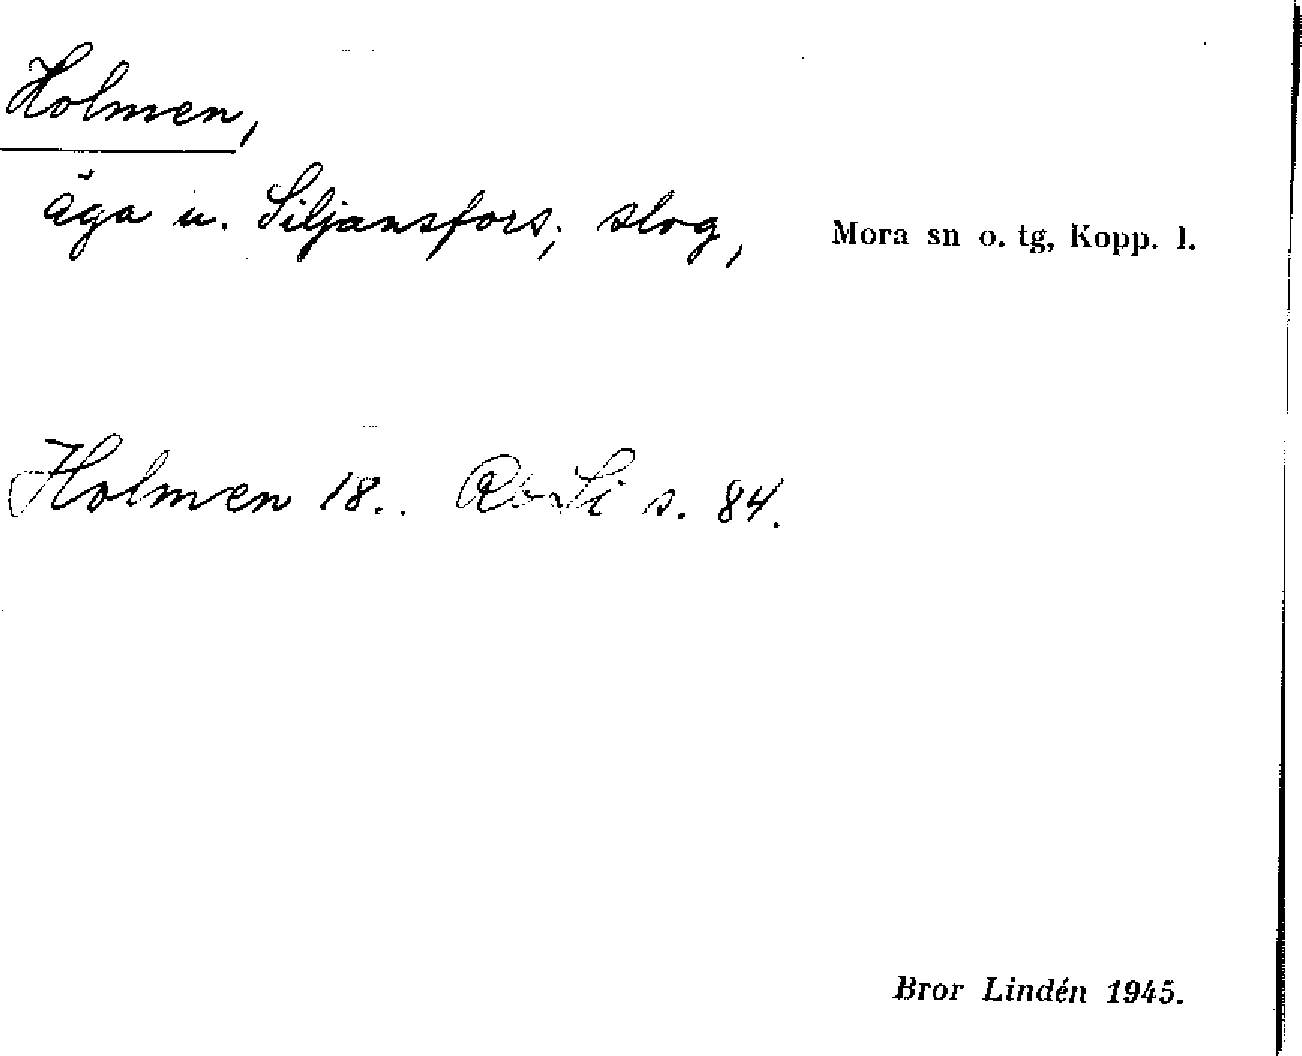 Holmen,
äga u. Siljansfors; slog, Mora sn o. tg, Kopp. l.
Holmen 18.. s. 84.
Bror Lindén 1945.